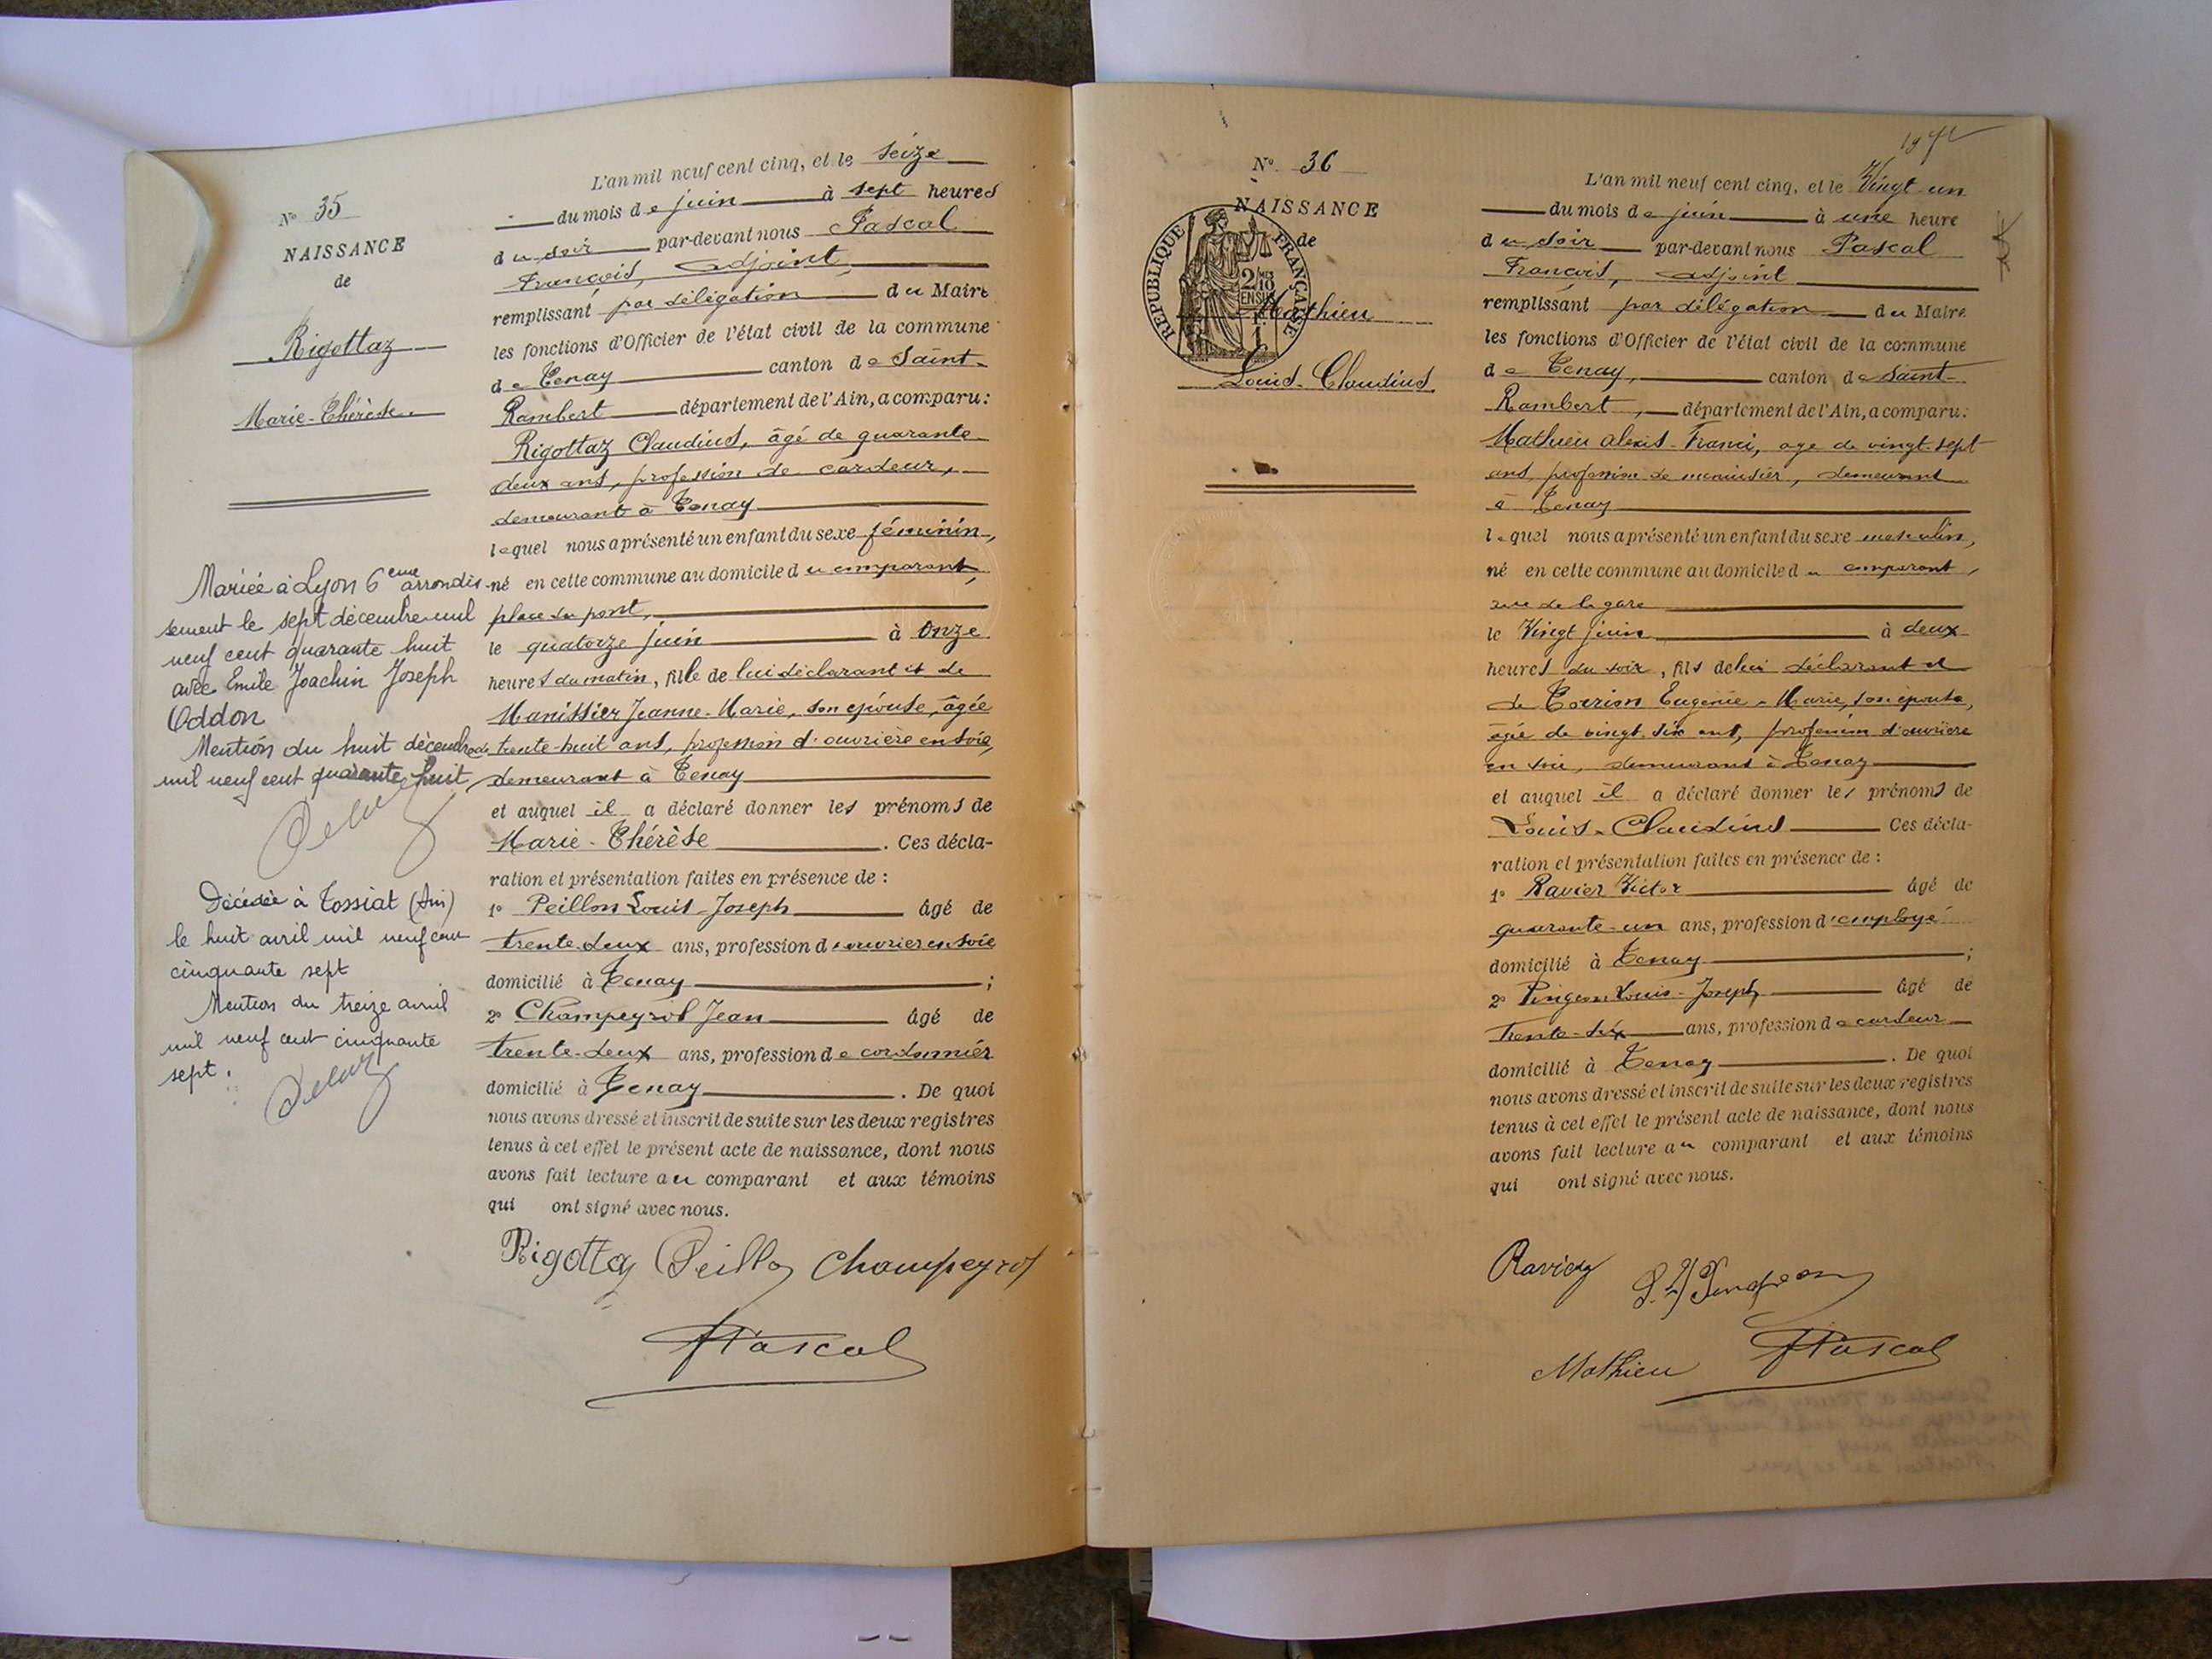 N° 35
NAISSANCE
de
Rigottaz
Marie-Thérèse
Mariée à Lyon 6eme arrondis-
sement le sept décembre mil
neuf cent quarante huit
avec Emile Joachin Joseph
Oddon
Mention du huit décembre
mil neuf cent quarante huit
Décédée à Tossiat (Ain)
le huit avril mil neuf cent
cinquante sept
Mention du treize avril
mil neuf cent cinquante
sept.
L'an mil neuf cent cinq, et le seize
du mois de juin à sept heures
du soir par-devant nous Pascal
François, adjoint
remplissant par délégation du Maire
les fonctions d'Officier de l'état civil de la commune
de Tenay canton de Saint-
Rambert département de l'Ain, a comparu:
Rigottaz Claudius, âgé de quarante-
deux ans, profession de cardeur,
demeurant à Tenay
lequel nous a présenté un enfant du sexe féminin,
né en cette commune au domicile du comparant,
place du pont,
le quatorze juin à onze
heures du matin, fille de lui déclarant et de
Manissier Jeanne-Marie, son épouse, âgée
de trente-huit ans, profession d'ouvrière en soie,
demeurant à Tenay
et auquel il a déclaré donner les prénoms de
Marie-Thérèse. Ces décla-
ration et présentation faites en présence de :
1° Peillon Louis-Joseph âgé de
trente-deux ans, profession d'ouvrier en soie
domicilié à Tenay ;
2° Champeyrol Jean âgé de
trente-deux ans, profession de cordonnier
domicilié à Tenay. De quoi
nous avons dressé et inscrit de suite sur les deux registres
tenus à cet effet le présent acte de naissance, dont nous
avons fait lecture au comparant et aux témoins
qui ont signé avec nous.
Rigottaz Peillon Champeyrol
Pascal
N° 36
NAISSANCE
de
RÉPUBLIQUE FRANÇAISE
2/10
EN SUS
Mathieu
Louis-Claudius
L'an mil neuf cent cinq, et le Vingt-un
du mois de juin à une heure
du soir par-devant nous Pascal
François, adjoint
remplissant par délégation du Maire
les fonctions d'Officier de l'état civil de la commune
de Tenay, canton de Saint-
Rambert, département de l'Ain, a comparu:
Mathieu Alexis-Franci, age de vingt-sept
ans, profession de menuisier, demeurant
à Tenay
lequel nous a présenté un enfant du sexe masculin,
né en cette commune au domicile du comparant,
rue de la gare
le Vingt juin à deux
heures du soir, fils de lui déclarant et
de Eugénie-Marie, son épouse,
âgée de vingt-six ans, profession d'ouvrière
en soie, demeurant à Tenay
et auquel il a déclaré donner les prénoms de
Louis-Claudius Ces décla-
ration et présentation faites en présence de :
1° Ravier Victor âgé de
quarante-un ans, profession d'employé
domicilié à Tenay ;
2° Pingeon Louis-Joseph âgé de
trente-six ans, profession de cardeur
domicilié à Tenay. De quoi
nous avons dressé et inscrit de suite sur les deux registres
tenus à cet effet le présent acte de naissance, dont nous
avons fait lecture au comparant et aux témoins
qui ont signé avec nous.
Ravier
L. J Pingeon
Mathieu Pascal